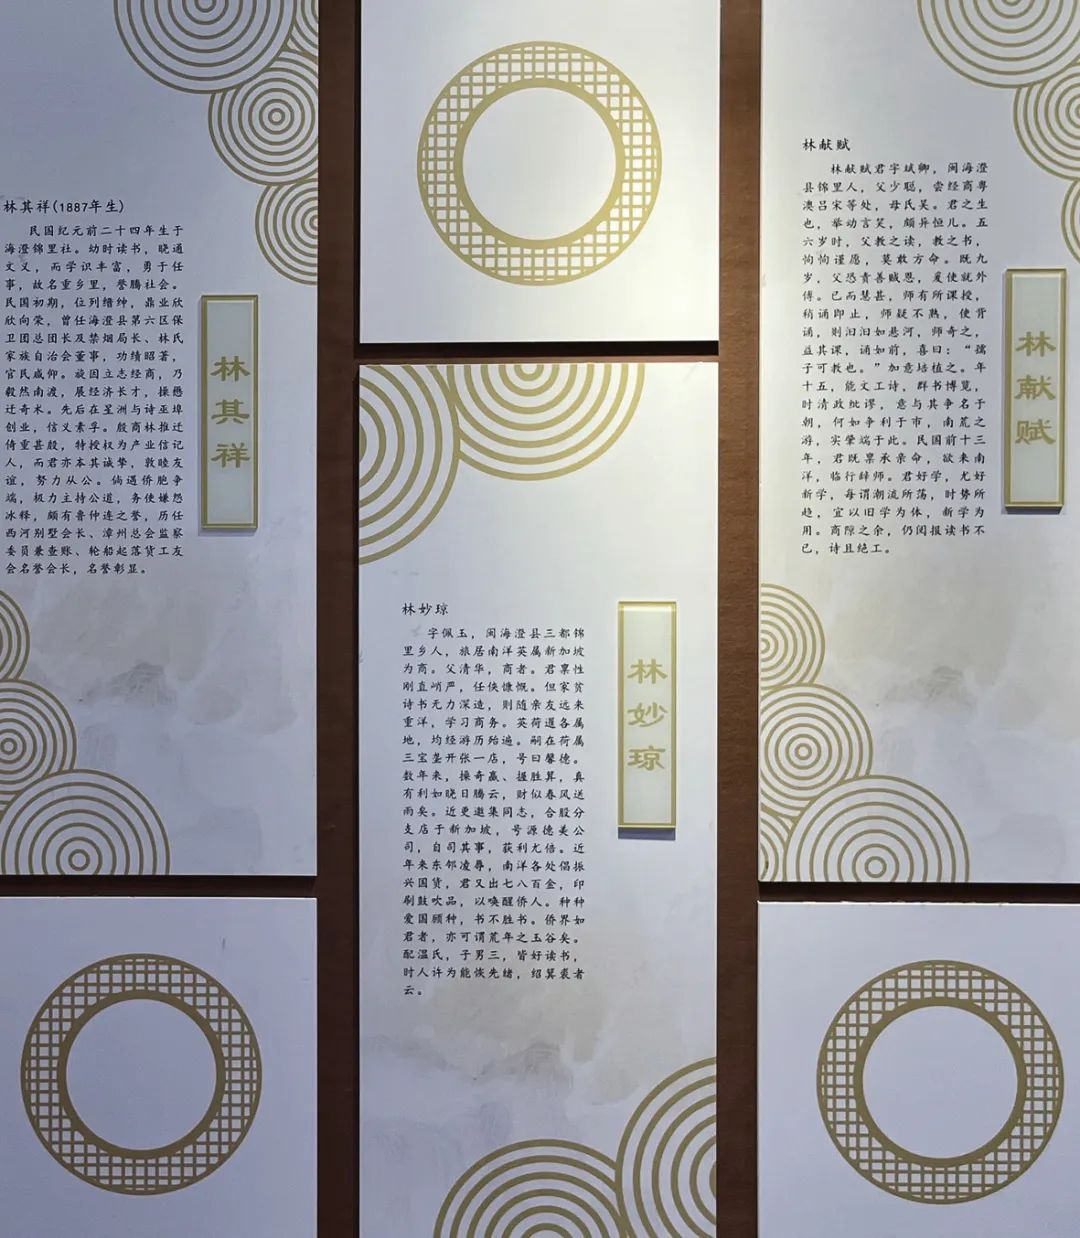 林其祥(1887年生)
民国纪元前二十四年生于
海澄锦里社。幼时读书，晓通
文义，而学识丰富，勇于任
事，故名重乡里，誉腾社会。
民国初期，位列缙绅，鼎业欣
欣向荣，曾任海澄县第六区保
卫团总团长及禁烟局长、林氏
家族自治会董事，功绩昭著，
官民咸仰。旋因立志经商，乃
毅然南渡，展经济长才，操懋
迁奇术。先后在星洲与诗巫埠
创业，信义素孚。殷商林推迁
倚重甚殷，特授权为产业信记
人，而君亦本其诚挚，敦睦友
谊，努力从公。倘遇侨胞争
端，极力主持公道，务使嫌怨
冰释，颇有鲁仲连之誉，历任
西河别墅会长、漳州总会监察
委员兼查账、轮船起落货工友
会名誉会长，名誉彰显。
林其祥
林妙琼
字佩玉，闽海澄县三都锦
里乡人，旅居南洋英属新加坡
为商。父清华，商者。君禀性
刚直峭严，任侠慷慨。但家贫
诗书无力深造，则随亲友远来
重洋，学习商务。英荷暹各属
地，均经游历殆遍。嗣在荷属
三宝垄开张一店，号曰馨德。
数年来，操奇赢、握胜算，真
有利如晓日腾云，财似春风送
雨矣。近更邀集同志，合股分
支店于新加坡，号源德美公
司，自司其事，获利尤倍。近
年来东邻凌辱，南洋各处倡振
兴国货，君又出七八百金，印
刷鼓吹品，以唤醒侨人。种种
爱国颐种，书不胜书。侨界如
君者，亦可谓荒年之玉谷矣。
配温氏，子男三，皆好读书，
时人许为能恢先绪，绍箕裘者
云。
林妙琼
林献赋
林献赋君字斌卿，闽海澄
县锦里人，父少聪，尝经商粤
澳吕宋等处，母氏吴。君之生
也，举动言笑，颇异恒儿。五
六岁时，父教之读，教之书，
恂恂谨愿，莫敢方命。既九
岁，父恐责善贼恩，爰使就外
傅。已而慧甚，师有所课授，
稍诵即止，师疑不熟，使背
诵，则汩汩如悬河，师奇之，
益其课，诵如前，喜曰：“孺
子可教也。”加意培植之。年
十五，能文工诗，群书博览，
时清政纰谬，意与其争名于
朝，何如争利于市，南荒之
游，实肇端于此。民国前十三
年，君既禀承亲命，欲来南
洋，临行辞师。君好学，尤好
新学，每谓潮流所荡，时势所
趋，宜以旧学为体，新学为
用。商隙之余，仍阅报读书不
已，诗且绝工。
林献赋